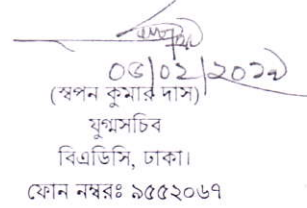 ০৫/০২/২০১৯
(স্বপন কুমার দাস)
যুগ্মসচিব
বিএডিসি, ঢাকা।
ফোন নম্বরঃ ৯৫৫২০৬৭